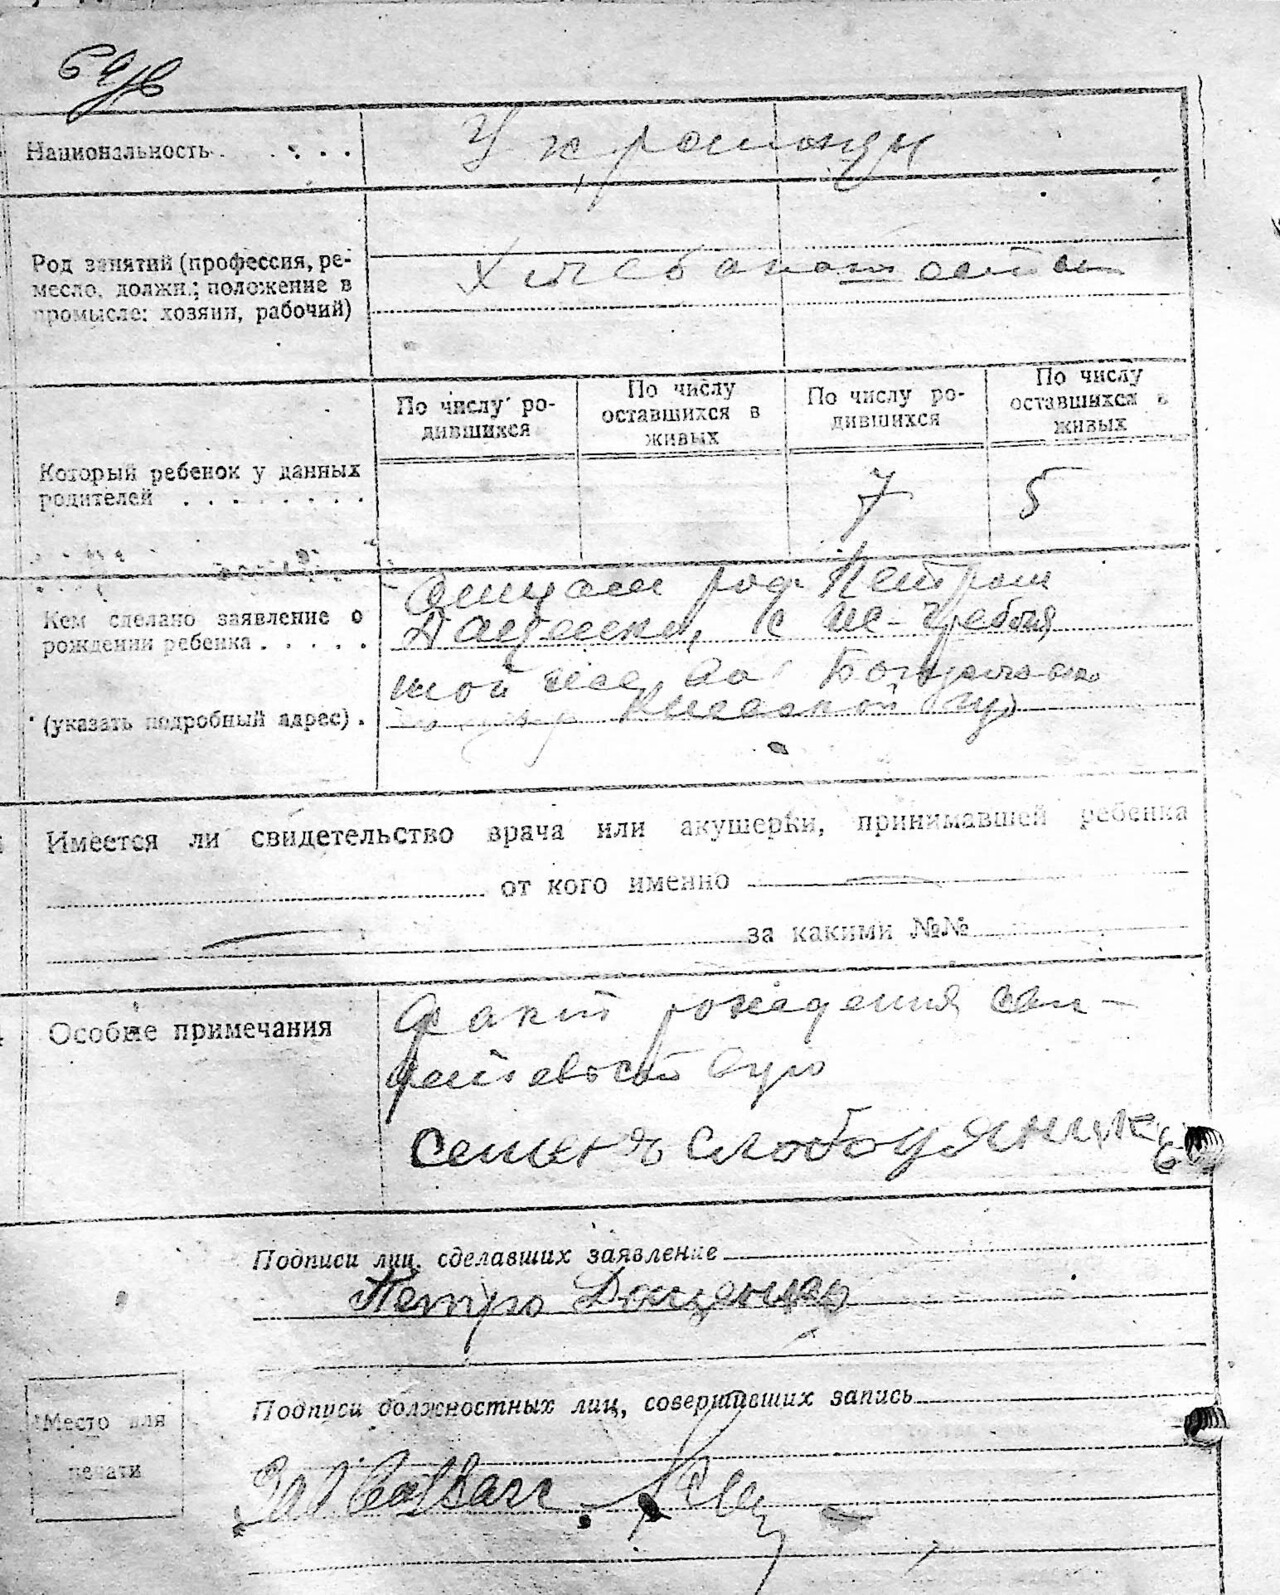 Национальность . . . . .
Украинцы
Род занятий (профессия, ре-
месло, должн.; положение в
промысле: хозяин, рабочий)
Хлебопашество
По числу ро-
дившихся
По числу
оставшихся в
живых
По числу ро-
дившихся
По числу
оставшихся в
живых
Который ребенок у данных
родителей . . . . . . . .
7
5
Кем сделано заявление о
рождении ребенка . . . . .
(указать подробный адрес) .
Отцом Петром
Даценко, с м-Гребён
кой
Киевской губ
Имеется ли свидетельство врача или акушерки, принимавшей ребенка
от кого именно
за какими №№
Особые примечания
Факт рождения
Семенъ Слободяник
Подписи лиц, сделавших заявление
Петро Даценко
Подписи должностных лиц, совершивших запись
Место для
печати